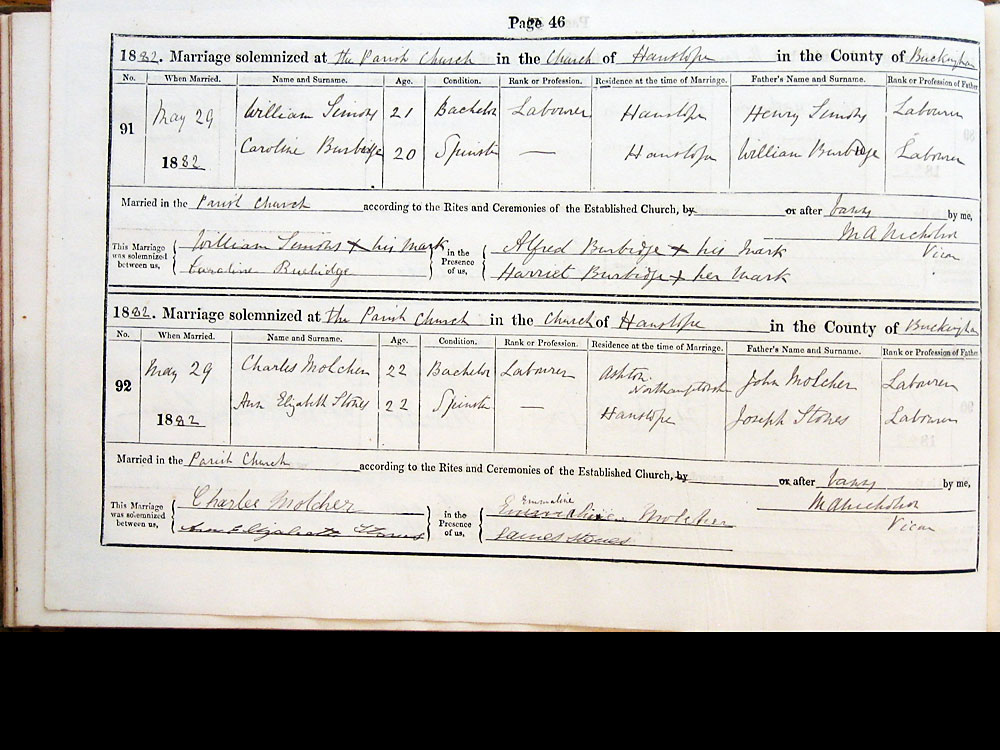 Page 46
1882. Marriage solemnized at the Parish Church in the Church of Hanslope in the County of Buckingham
No. When Married. Name and Surname. Age. Condition. Rank or Profession. Residence at the time of Marriage. Father's Name and Surname. Rank or Profession of Father
91 May 29 William Simons 21 Bachelor Labourer Hanslope Henry Simons Labourer
1882 Caroline Burbidge 20 Spinster — Hanslope William Burbidge Labourer
Married in the Parish Church according to the Rites and Ceremonies of the Established Church, by or after banns by me,
M A Nicholson
Vicar
This Marriage was solemnized between us, William Simons X his mark in the Presence of us, Alfred Burbidge X his mark
Caroline Burbidge Harriet Burbidge X her mark
1882. Marriage solemnized at the Parish Church in the Church of Hanslope in the County of Buckingham
No. When Married. Name and Surname. Age. Condition. Rank or Profession. Residence at the time of Marriage. Father's Name and Surname. Rank or Profession of Father
92 May 29 Charles Molcher 22 Bachelor Labourer Ashton Northamptonsh John Molcher Labourer
1882 Ann Elizabeth Stones 22 Spinster — Hanslope Joseph Stones Labourer
Married in the Parish Church according to the Rites and Ceremonies of the Established Church, by or after banns by me,
M A Nicholson
Vicar
This Marriage was solemnized between us, Charles Molcher in the Presence of us, Emmaline Molcher
Ann Elizabeth Stones James Stones